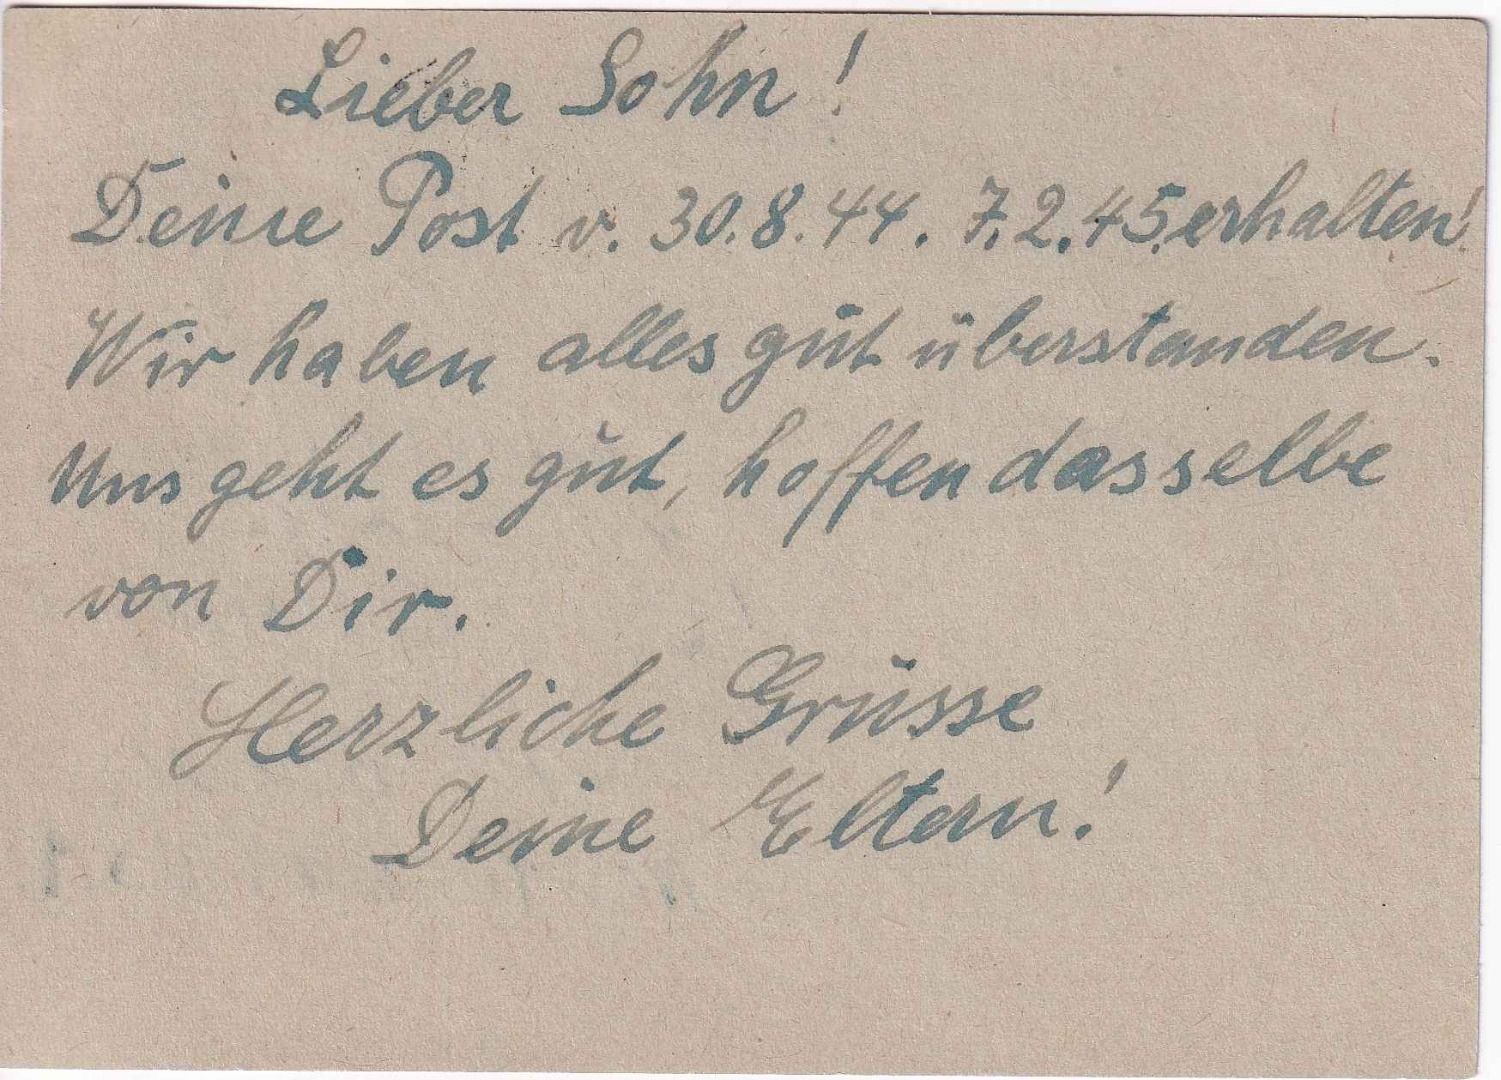 Lieber Sohn!
Deine Post v. 30.8.44. 7.2.45. erhalten!
Wir haben alles gut überstanden.
Uns geht es gut, hoffen dasselbe
von Dir.
Herzliche Grüsse
Deine Eltern!